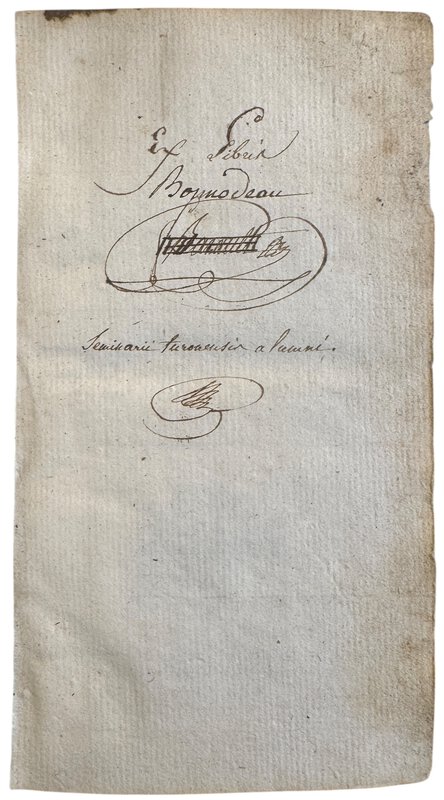 Ex Libris
Bonnodeau
Seminarii turonensis alumni.